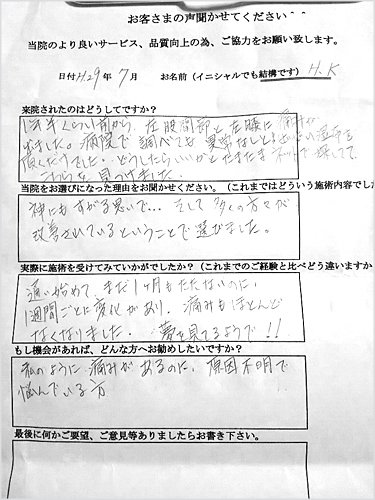 お客さまの声聞かせてください＾＾
当院のより良いサービス、品質向上の為、ご協力をお願い致します。
日付 H29年 7月 お名前（イニシャルでも結構です） H.K
来院されたのはどうしてですか？
1年半くらい前から、左股間節と左腰に痛みが
出ました。病院で調べても異常なしと
どうしたらいいかと ネットで探してて、
こちらを見つけました。
当院をお選びになった理由をお聞かせください。（これまではどういう施術内容でした
神にもすがる思いで… そして多くの方々が
改善されているということで選びました。
実際に施術を受けてみていかがでしたか？（これまでのご経験と比べどう違いますか
通い始めて、まだ1ヶ月もたたないのに、
1週間ごとに変化があり、痛みもほとんど
なくなりました。 夢を見てるようで！！
もし機会があれば、どんな方へお勧めしたいですか？
私のように痛みがあるのに、原因不明で
悩んでいる方
最後に何かご要望、ご意見等ありましたらお書き下さい。